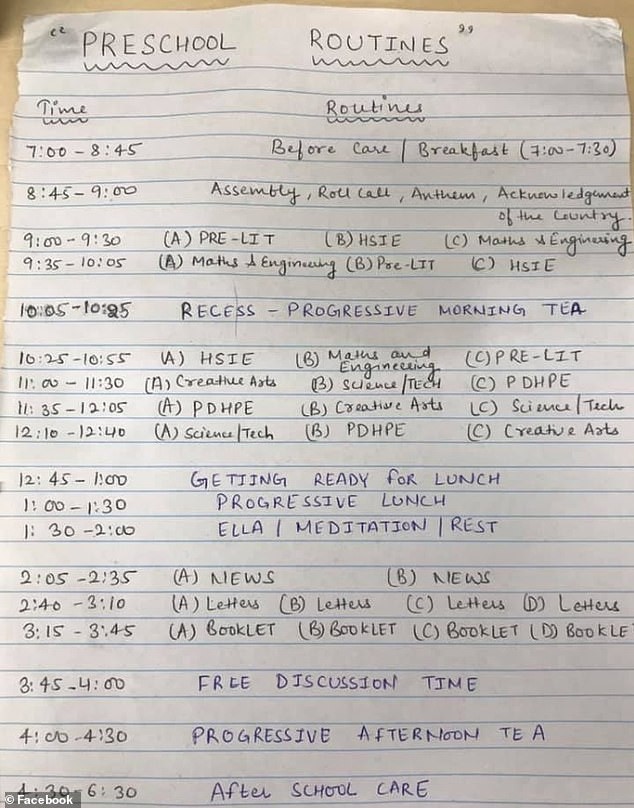 “ PRESCHOOL ROUTINES ”
Time Routines
7:00 - 8:45 Before Care / Breakfast (7:00-7:30)
8:45 - 9:00 Assembly, Roll Call, Anthem, Acknowledgement
of the Country.
9:00 - 9:30 (A) PRE-LIT (B) HSIE (C) Maths & Engineering
9:35 - 10:05 (A) Maths & Engineering (B) Pre-LIT (C) HSIE
10:05 - 10:25 RECESS - PROGRESSIVE MORNING TEA
10:25 - 10:55 (A) HSIE (B) Maths and Engineering (C) PRE-LIT
11:00 - 11:30 (A) Creative Arts (B) Science/TECH (C) PDHPE
11:35 - 12:05 (A) PDHPE (B) Creative Arts (C) Science/Tech
12:10 - 12:40 (A) Science/Tech (B) PDHPE (C) Creative Arts
12:45 - 1:00 GETTING READY FOR LUNCH
1:00 - 1:30 PROGRESSIVE LUNCH
1:30 - 2:00 ELLA / MEDITATION / REST
2:05 - 2:35 (A) NEWS (B) NEWS
2:40 - 3:10 (A) Letters (B) Letters (C) Letters (D) Letters
3:15 - 3:45 (A) BOOKLET (B) BOOKLET (C) BOOKLET (D) BOOKLE
3:45 - 4:00 FREE DISCUSSION TIME
4:00 - 4:30 PROGRESSIVE AFTERNOON TEA
4:30 - 6:30 After SCHOOL CARE
© Facebook